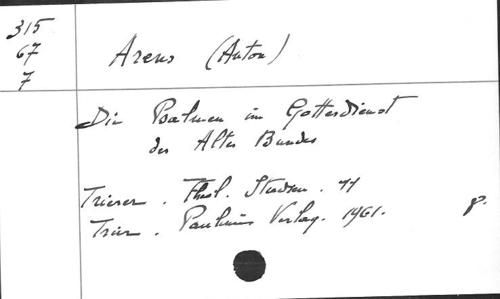 315
67
7
Arens (Anton)
Die Psalmen im Gottesdienst
des Alten Bundes
Trierer. Theol. Studien. 11
Trier. Paulinus Verlag. 1961. 8.